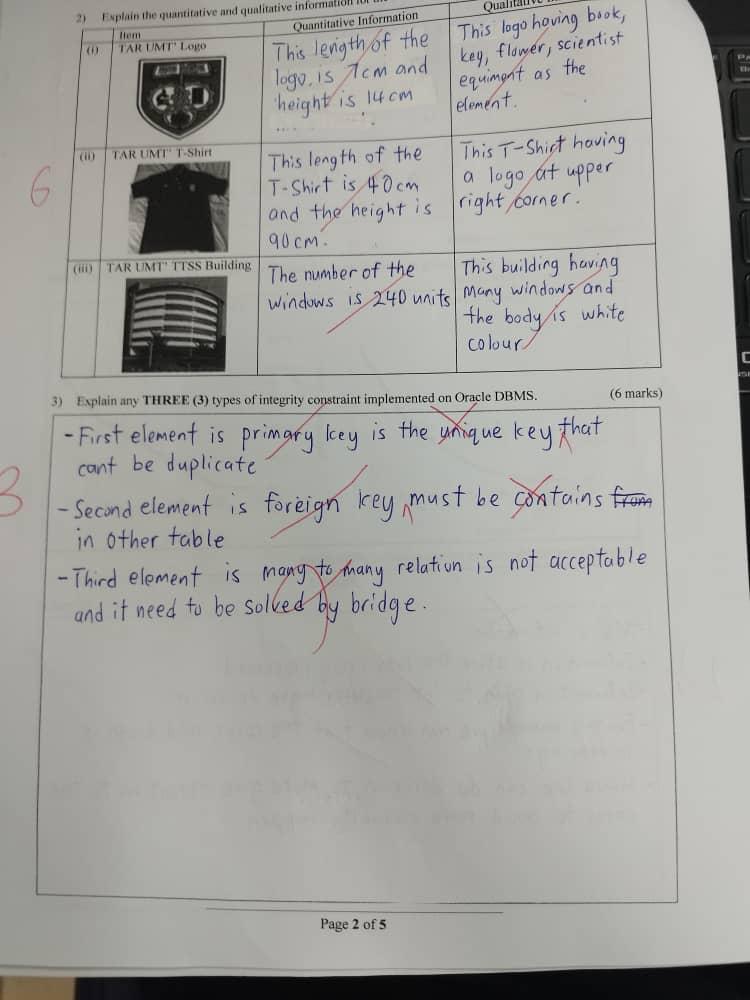 2) Explain the quantitative and qualitative information
Item
Quantitative Information
(i) TAR UMT' Logo
This length of the
logo, is 7cm and
height is 14cm
This logo having book,
key, flower, scientist
equiment as the
element.
6
(ii) TAR UMT' T-Shirt
This length of the
T-Shirt is 40cm
and the height is
90cm.
This T-Shirt having
a logo at upper
right corner.
(iii) TAR UMT' TTSS Building
The number of the
windows is 240 units
This building having
Many windows and
the body is white
colour
3) Explain any THREE (3) types of integrity constraint implemented on Oracle DBMS. (6 marks)
3
- First element is primary key is the unique key that
cant be duplicate
- Second element is foreign key must be contains from
in other table
- Third element is many to many relation is not acceptable
and it need to be solved by bridge.
Page 2 of 5